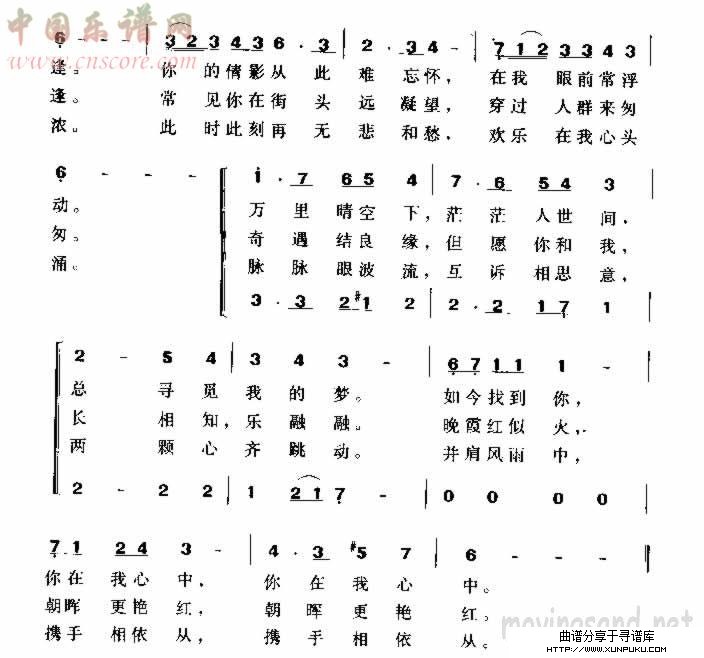 中国乐谱网
www.cnscore.com
6 - - - | 3 2 3 4 3 6 · 3 | 2 · 3 4 - | 7 1 2 3 3 4 3 |
逢。 你的倩影从此难忘怀，在我眼前常浮
逢。 常见你在街头远凝望，穿过人群来匆
浓。 此时此刻再无悲和愁，欢乐在我心头
6 - - - | 1 · 7 6 5 4 | 7 · 6 5 4 3 |
动。 万里晴空下，茫茫人世间，
匆。 奇遇结良缘，但愿你和我，
涌。 脉脉眼波流，互诉相思意，
3 · 3 2 #1 2 | 2 · 2 1 7 1 |
2 - 5 4 | 3 4 3 - | 6 7 1 1 1 - |
总寻觅我的梦。 如今找到你，
长相知，乐融融。 晚霞红似火，
两颗心齐跳动。 并肩风雨中，
2 - 2 2 | 1 2 1 7 - | 0 0 0 0 |
7 1 2 4 3 - | 4 · 3 #5 7 | 6 - - - |
你在我心中， 你在我心中。
朝晖更艳红， 朝晖更艳红。
携手相依从， 携手相依从。
movingsand.net
曲谱分享于寻谱库
HTTP://WWW.XUNPUKU.COM